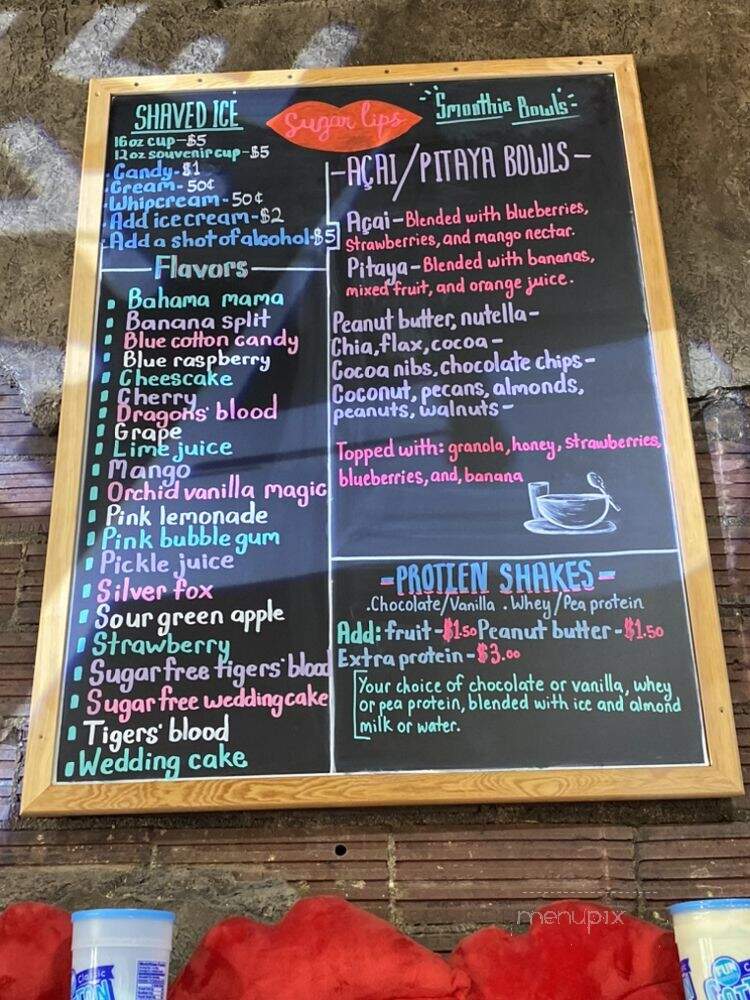 SHAVED ICE
16oz cup-$5
12oz souvenir cup-$5
Candy-$1
Cream-50¢
Whipcream-50¢
Add ice cream-$2
Add a shot of alcohol-$5
Flavors
Bahama mama
Banana split
Blue cotton candy
Blue raspberry
Cheescake
Cherry
Dragons' blood
Grape
Lime juice
Mango
Orchid vanilla magic
Pink lemonade
Pink bubble gum
Pickle juice
Silver fox
Sour green apple
Strawberry
Sugar free tigers' blood
Sugar free wedding cake
Tigers' blood
Wedding cake
Sugar lips
Smoothie Bowls
-AÇAI/PITAYA BOWLS-
Açai-Blended with blueberries,
strawberries, and mango nectar.
Pitaya-Blended with bananas,
mixed fruit, and orange juice.
Peanut butter, nutella-
Chia, flax, cocoa-
Cocoa nibs, chocolate chips-
Coconut, pecans, almonds,
peanuts, walnuts-
Topped with: granola, honey, strawberries,
blueberries, and, banana
-PROTIEN SHAKES-
.Chocolate/Vanilla .Whey/Pea protein
Add: fruit-$1.50 Peanut butter-$1.50
Extra protein-$3.00
Your choice of chocolate or vanilla, whey
or pea protein, blended with ice and almond
milk or water.
menupix
Classic